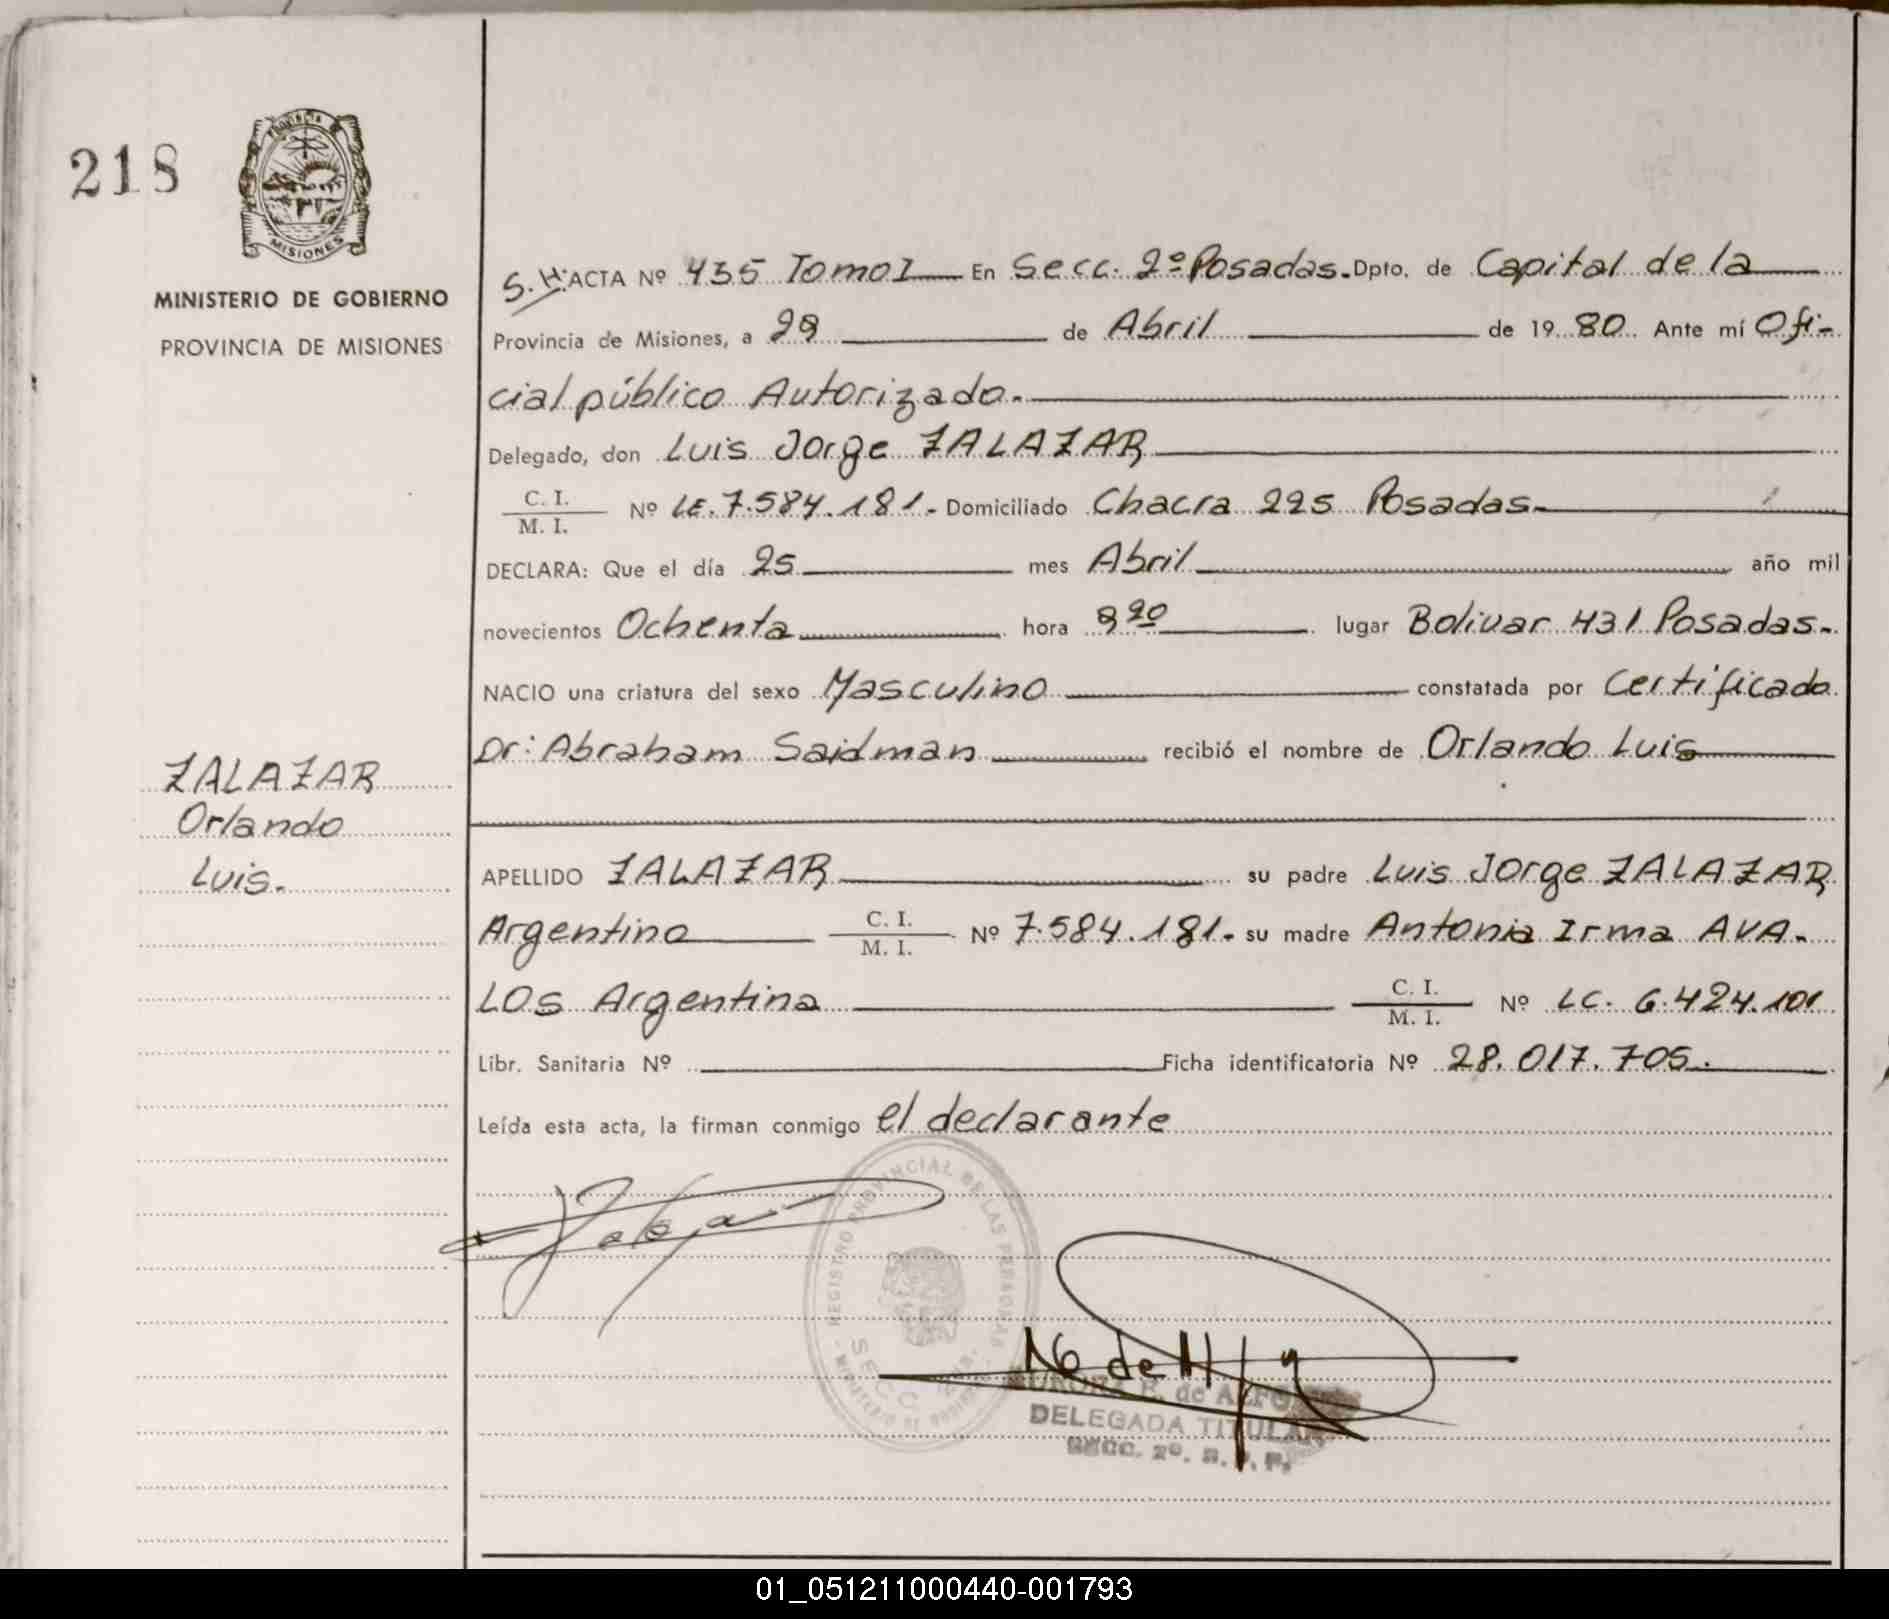 218
PROVINCIA DE
MISIONES
MINISTERIO DE GOBIERNO
PROVINCIA DE MISIONES
S.H. ACTA Nº 435 Tomo I En Secc. 2º Posadas. Dpto. de Capital de la
Provincia de Misiones, a 29 de Abril de 1980. Ante mí Ofi-
cial público Autorizado.
Delegado, don Luis Jorge ZALAZAR
C. I.
M. I. Nº LE. 7.584.181. Domiciliado Chacra 225 Posadas.
DECLARA: Que el día 25 mes Abril año mil
novecientos Ochenta hora 8 20 lugar Bolivar 431 Posadas.
NACIO una criatura del sexo Masculino constatada por Certificado
Dr: Abraham Saidman recibió el nombre de Orlando Luis
ZALAZAR
Orlando
Luis.
APELLIDO ZALAZAR su padre Luis Jorge ZALAZAR
Argentino C. I. M. I. Nº 7.584.181. su madre Antonia Irma AVA-
LOS Argentina C. I. M. I. Nº LC. 6.424.101
Libr. Sanitaria Nº Ficha identificatoria Nº 28.017.705.
Leída esta acta, la firman conmigo el declarante
REGISTRO PROVINCIAL DE LAS PERSONAS
SECC.
MINISTERIO DE GOBIERNO
de
DELEGADA TITULAR
SECC. 2º. R. P. P.
01_051211000440-001793